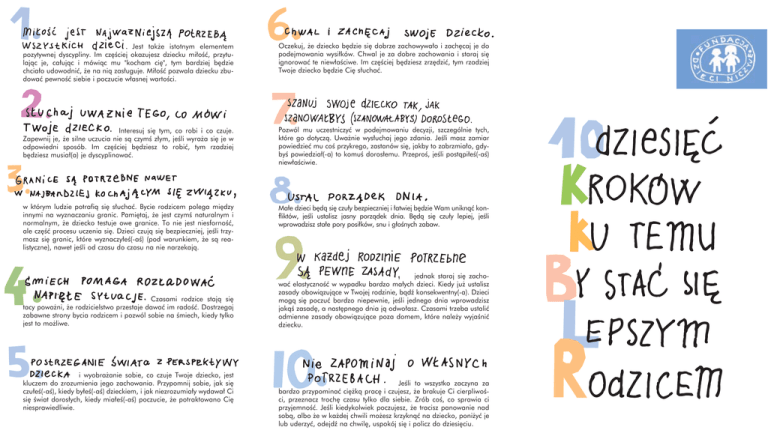 1.
Miłość jest najważniejszą potrzebą
wszystkich dzieci. Jest także istotnym elementem
pozytywnej dyscypliny. Im częściej okazujesz dziecku miłość, przytu-
lając je, całując i mówiąc mu "kocham cię", tym bardziej będzie
chciało udowodnić, że na nią zasługuje. Miłość pozwala dziecku zbu-
dować pewność siebie i poczucie własnej wartości.
2.
Słuchaj uważnie tego, co mówi
Twoje dziecko. Interesuj się tym, co robi i co czuje.
Zapewnij je, że silne uczucia nie są czymś złym, jeśli wyraża się je w
odpowiedni sposób. Im częściej będziesz to robić, tym rzadziej
będziesz musiał(a) je dyscyplinować.
3.
Granice są potrzebne nawet
w najbardziej kochającym się związku,
w którym ludzie potrafią się słuchać. Bycie rodzicem polega między
innymi na wyznaczaniu granic. Pamiętaj, że jest czymś naturalnym i
normalnym, że dziecko testuje owe granice. To nie jest niesforność,
ale część procesu uczenia się. Dzieci czują się bezpieczniej, jeśli trzy-
masz się granic, które wyznaczyłeś(-aś) (pod warunkiem, że są rea-
listyczne), nawet jeśli od czasu do czasu na nie narzekają.
4.
Śmiech pomaga rozładować
napięte sytuacje. Czasami rodzice stają się
tacy poważni, że rodzicielstwo przestaje dawać im radość. Dostrzegaj
zabawne strony bycia rodzicem i pozwól sobie na śmiech, kiedy tylko
jest to możliwe.
5
Postrzeganie świata z perspektywy
dziecka i wyobrażanie sobie, co czuje Twoje dziecko, jest
kluczem do zrozumienia jego zachowania. Przypomnij sobie, jak się
czułeś(-aś), kiedy byłeś(-aś) dzieckiem, i jak niezrozumiały wydawał Ci
się świat dorosłych, kiedy miałeś(-aś) poczucie, że potraktowano Cię
niesprawiedliwie.
6.
Chwal i zachęcaj swoje dziecko.
Oczekuj, że dziecko będzie się dobrze zachowywało i zachęcaj je do
podejmowania wysiłków. Chwal je za dobre zachowania i staraj się
ignorować te niewłaściwe. Im częściej będziesz zrzędzić, tym rzadziej
Twoje dziecko będzie Cię słuchać.
7.
Szanuj swoje dziecko tak, jak
szanowałbyś (szanowałabyś) dorosłego.
Pozwól mu uczestniczyć w podejmowaniu decyzji, szczególnie tych,
które go dotyczą. Uważnie wysłuchaj jego zdania. Jeśli masz zamiar
powiedzieć mu coś przykrego, zastanów się, jakby to zabrzmiało, gdy-
byś powiedział(-a) to komuś dorosłemu. Przeproś, jeśli postąpiłeś(-aś)
niewłaściwie.
8.
Ustal porządek dnia.
Małe dzieci będą się czuły bezpieczniej i łatwiej będzie Wam uniknąć kon-
fliktów, jeśli ustalisz jasny porządek dnia. Będą się czuły lepiej, jeśli
wprowadzisz stałe pory posiłków, snu i głośnych zabaw.
9
W każdej rodzinie potrzebne
są pewne zasady, jednak staraj się zacho-
wać elastyczność w wypadku bardzo małych dzieci. Kiedy już ustalisz
zasady obowiązujące w Twojej rodzinie, bądź konsekwentny(-a). Dzieci
mogą się poczuć bardzo niepewnie, jeśli jednego dnia wprowadzisz
jakąś zasadę, a następnego dnia ją odwołasz. Czasami trzeba ustalić
odmienne zasady obowiązujące poza domem, które należy wyjaśnić
dziecku.
10.
Nie zapominaj o własnych
potrzebach. Jeśli to wszystko zaczyna za
bardzo przypominać ciężką pracę i czujesz, że brakuje Ci cierpliwoś-
ci, przeznacz trochę czasu tylko dla siebie. Zrób coś, co sprawia ci
przyjemność. Jeśli kiedykolwiek poczujesz, że tracisz panowanie nad
sobą, albo że w każdej chwili możesz krzyknąć na dziecko, poniżyć je
lub uderzyć, odejdź na chwilę, uspokój się i policz do dziesięciu.
FUNDACJA
DZIECI NICZYJE
10 dziesięć
kroków
ku temu
by stać się
lepszym
Rodzicem